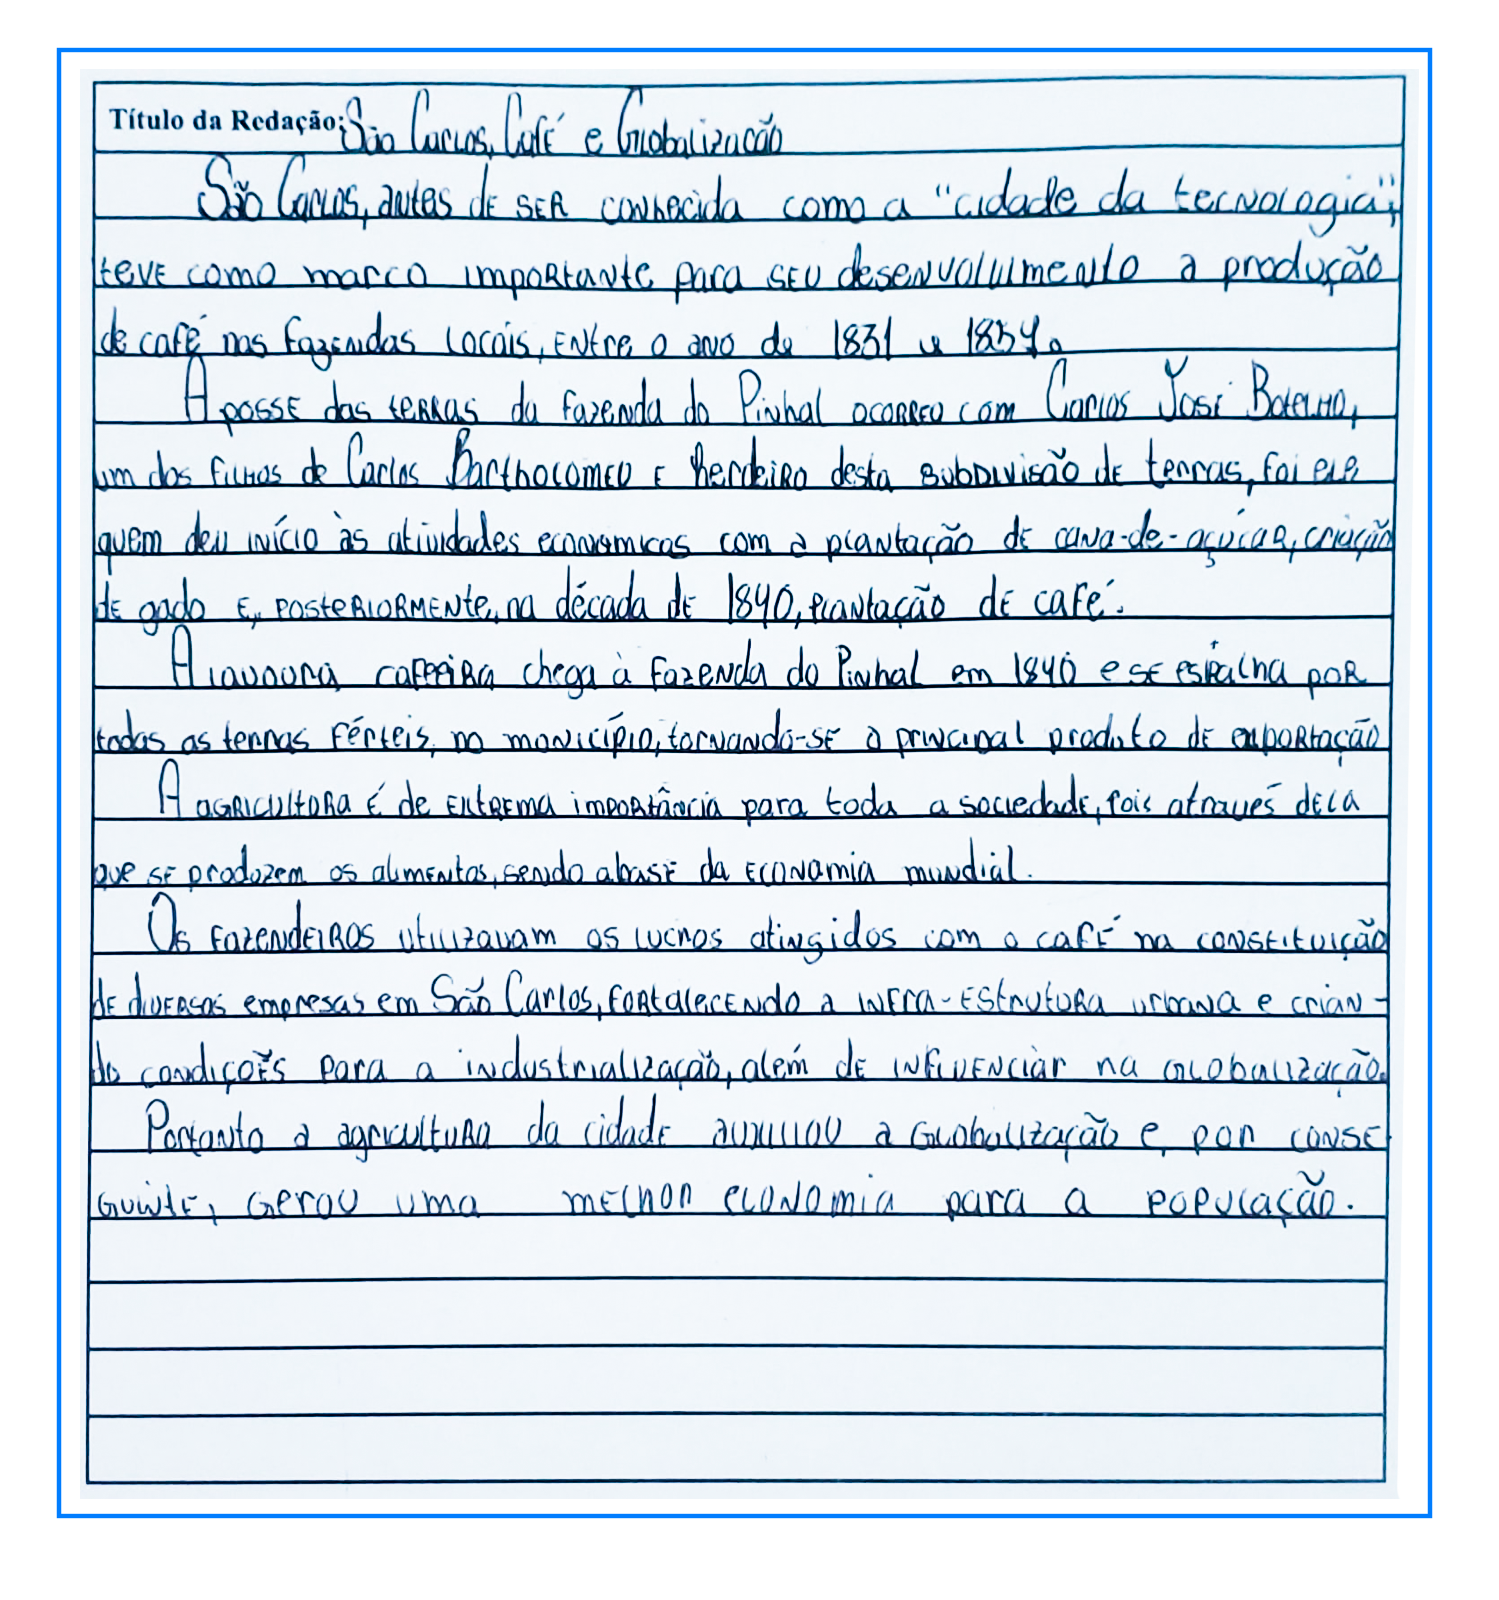 Título da Redação: São Carlos, Café e Globalização
São Carlos, antes de ser conhecida como a "cidade da tecnologia",
teve como marco importante para seu desenvolvimento a produção
de café nas fazendas locais, entre o ano de 1831 e 1857.
A posse das terras da fazenda do Pinhal ocorreu com Carlos José Botelho,
um dos filhos de Carlos Bartholomeu e herdeiro desta subdivisão de terras, foi ele
quem deu início às atividades econômicas com a plantação de cana-de-açúcar, criação
de gado e, posteriormente, na década de 1840, plantação de café.
A lavoura cafeeira chega à fazenda do Pinhal em 1840 e se espalha por
todas as terras férteis, no município, tornando-se a principal produto de exportação
A agricultura é de extrema importância para toda a sociedade, pois através dela
que se produzem os alimentos, sendo a base da economia mundial.
Os fazendeiros utilizavam os lucros atingidos com o café na constituição
de diversas empresas em São Carlos, fortalecendo a infra-estrutura urbana e crian-
do condições para a industrialização, além de influenciar na globalização.
Portanto a agricultura da cidade auxiliou a globalização e, por conse
guinte, gerou uma melhor economia para a população.